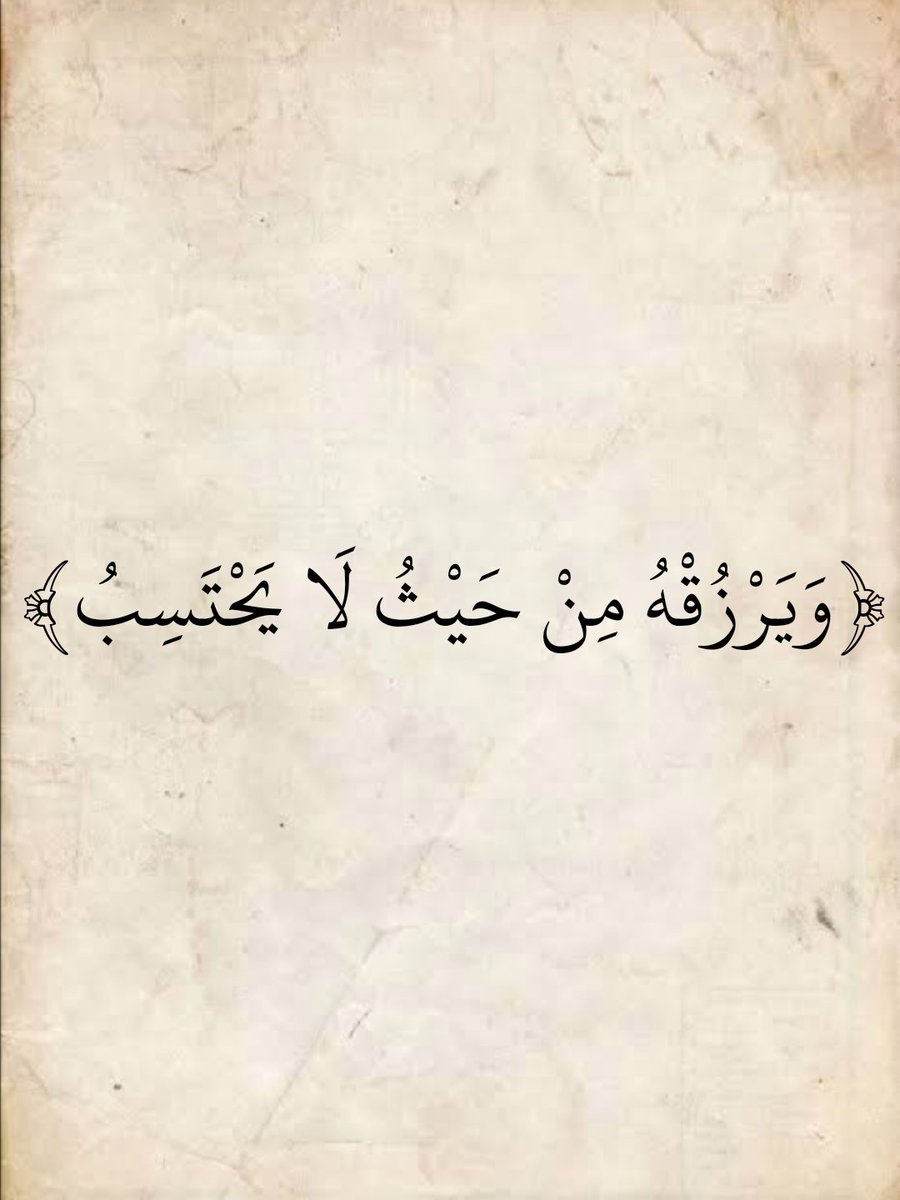 ﴿وَيَرْزُقْهُ مِنْ حَيْثُ لَا يَحْتَسِبُ﴾